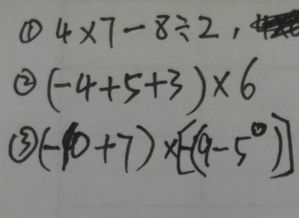 ① 4×7-8÷2,
② (-4+5+3)×6
③ (-10+7)×[-(9-5⁰)]